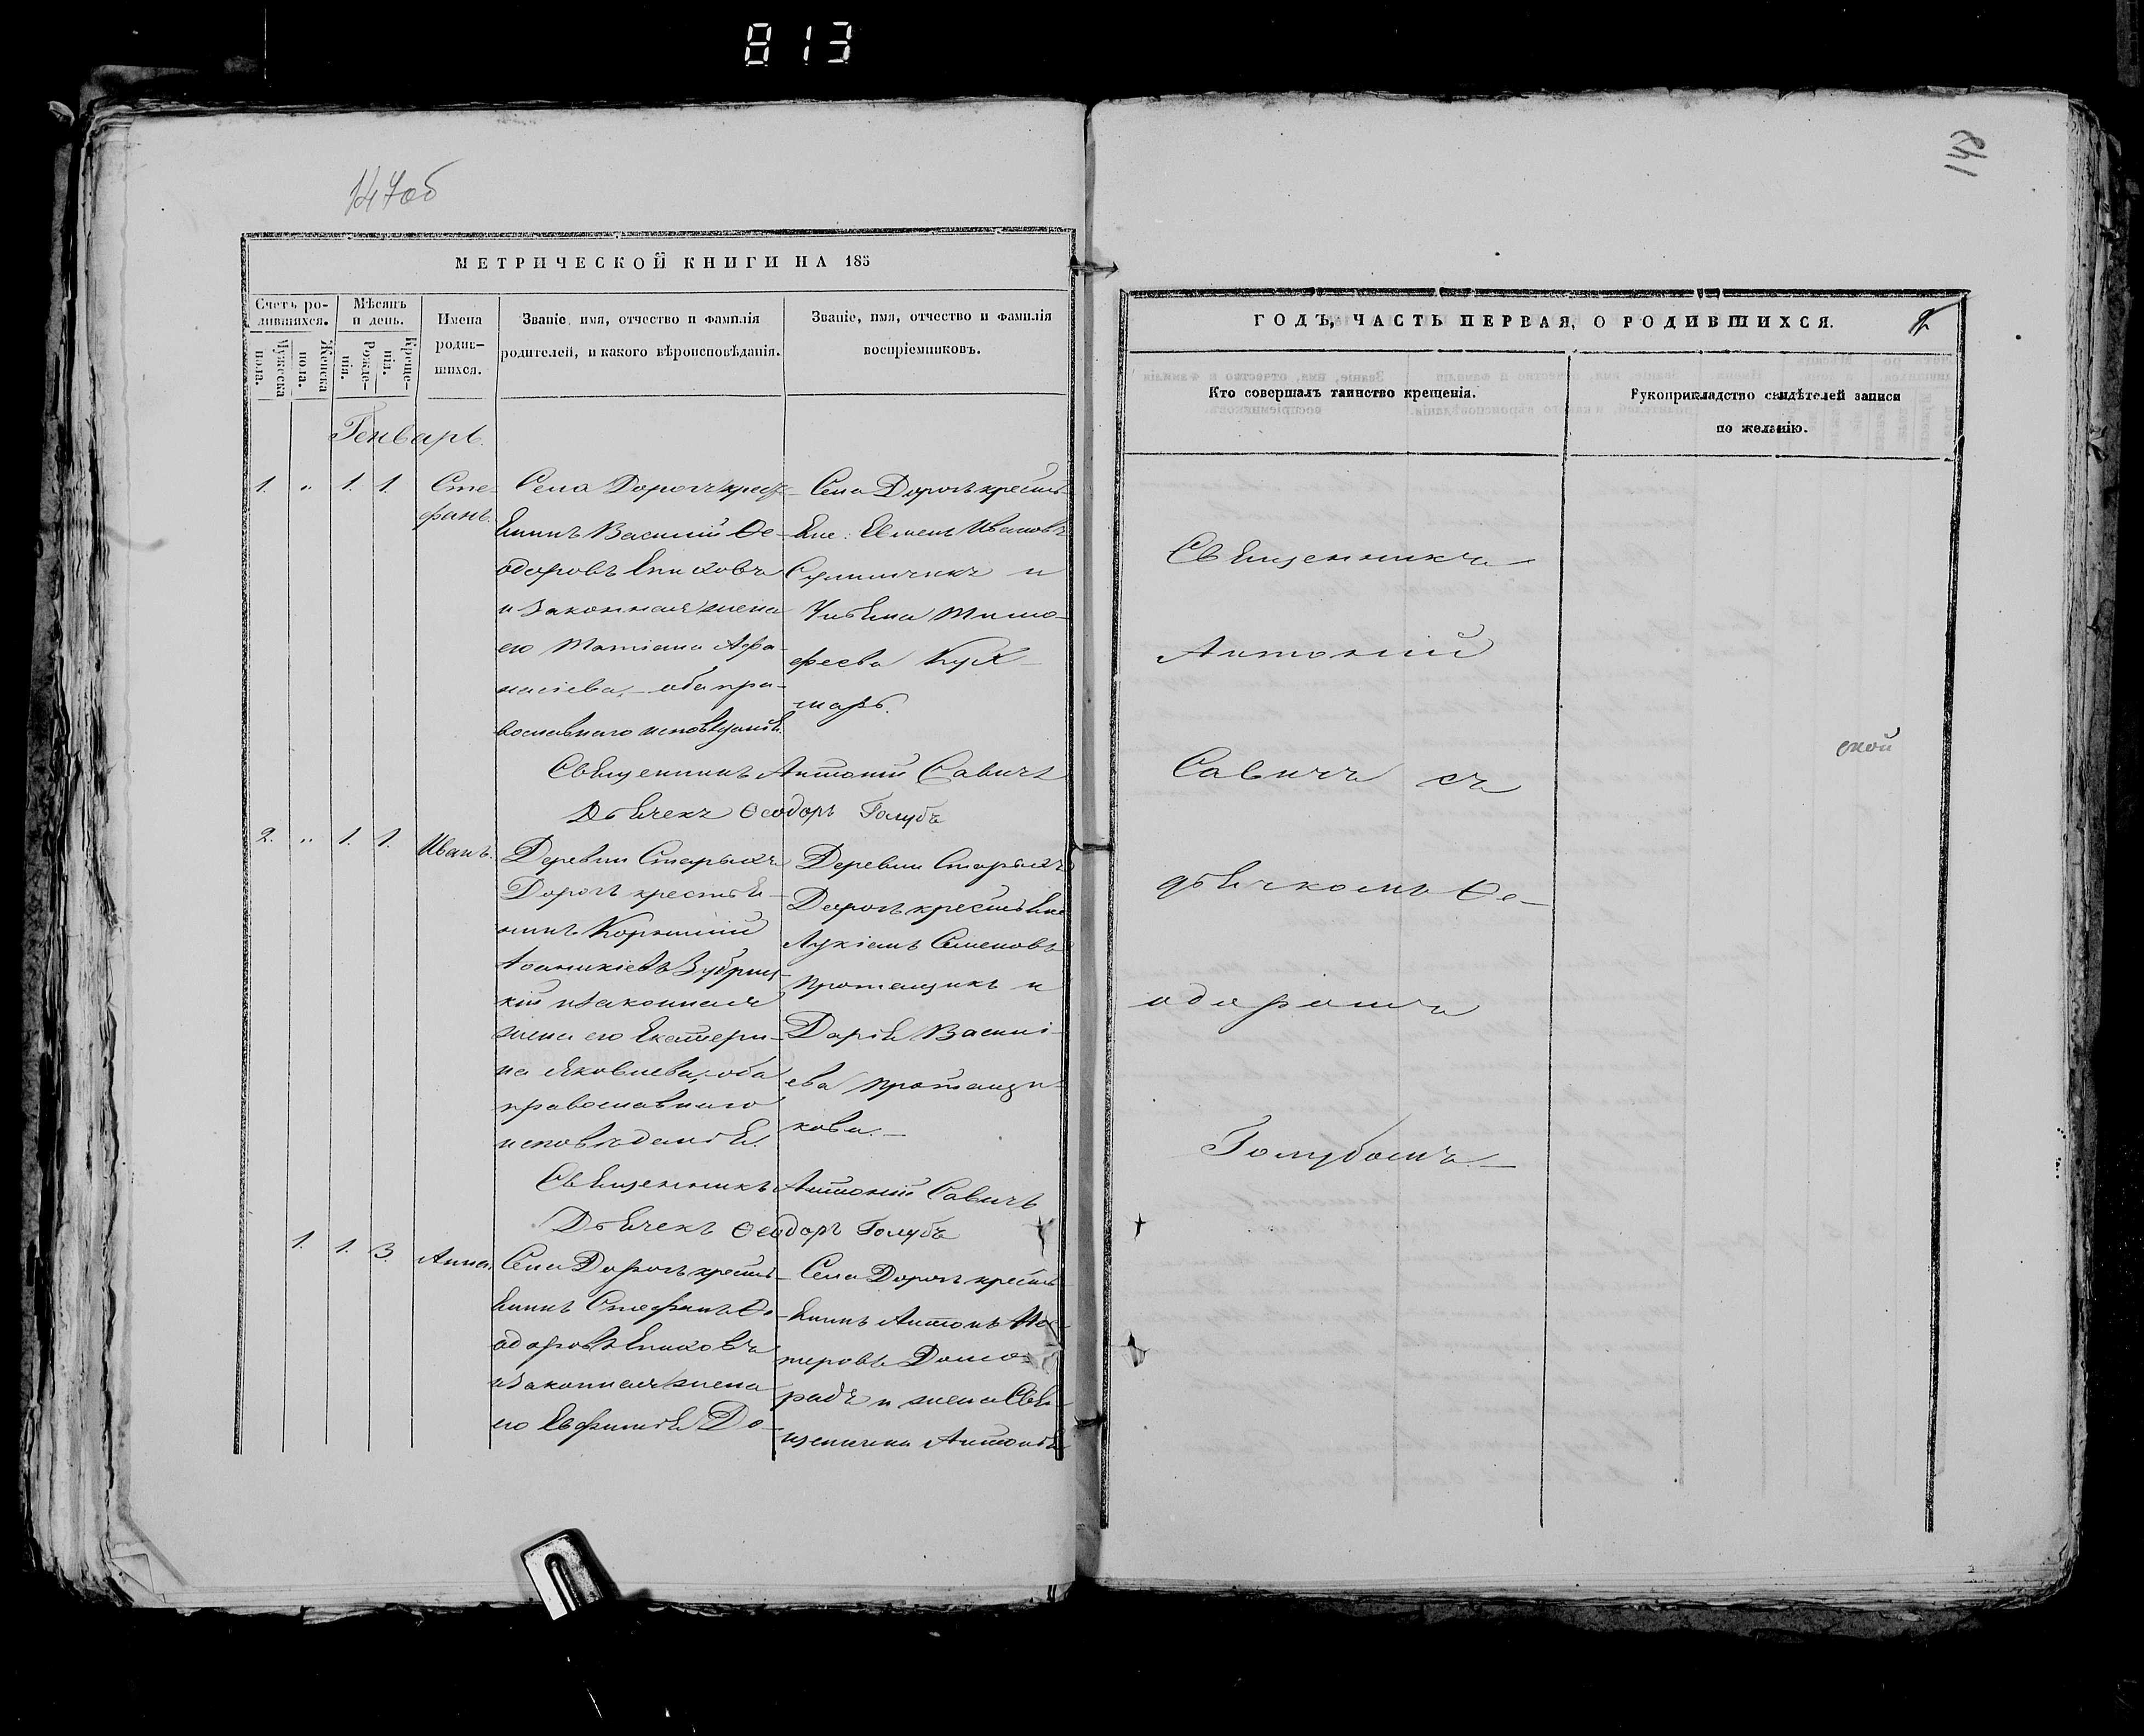 813
147об
148
МЕТРИЧЕСКОЙ КНИГИ НА 185
Счетъ ро-
дившихся.
Мѣсяцъ
и день.
Имена
родив-
шихся.
Званіе, имя, отчество и фамилія
родителей, и какого вѣроисповѣданія.
Званіе, имя, отчество и фамилія
воспріемниковъ.
Мужеска
пола.
Женска
пола.
Рожде-
нія.
Креще-
нія.
Генварь.
1. „ 1. 1.
Сте-
фанъ.
Села Дорогъ крест-
янинъ Василій Ѳе-
одоровъ
и законная жена
его Татіана Афа-
насіева, оба пра-
вославнаго исповѣданія.
Села Дорогъ крестья-
не: Семенъ Ивановъ
и
Ульяна Тимо-
феева Кух-
нарь.
Священникъ Антоній Савичъ
Дьячекъ Ѳеодоръ Голубъ
2. „ 1. 1.
Иванъ.
Деревни Старыхъ
Дорогъ крестья-
нинъ Корнилій
Іоанникіевъ Зубриц-
кій и законная
жена его Екатери-
на Яковлева, оба
православнаго
исповѣданія.
Деревни Старыхъ
Дорогъ крестьяне
Лукіанъ Семеновъ
и
Дарія Василі-
ева
кова.
Священникъ Антоній Савичъ
Дьячекъ Ѳеодоръ Голубъ
1. 1. 3.
Анна.
Села Дорогъ кресть-
янинъ Стефанъ Ѳе-
одоровъ
и законная жена
его Евфимія До-
Села Дорогъ кресть-
янинъ Антонъ Не-
теровъ Домо-
радъ и жена Свя-
щенника Антонія
ГОДЪ, ЧАСТЬ ПЕРВАЯ, О РОДИВШИХСЯ.
Кто совершалъ таинство крещенія.
Рукоприкладство свидѣтелей записи
по желанію.
Священникъ
Антоній
Савичъ съ
дьячкомъ Ѳе-
одоромъ
Голубомъ.
ской